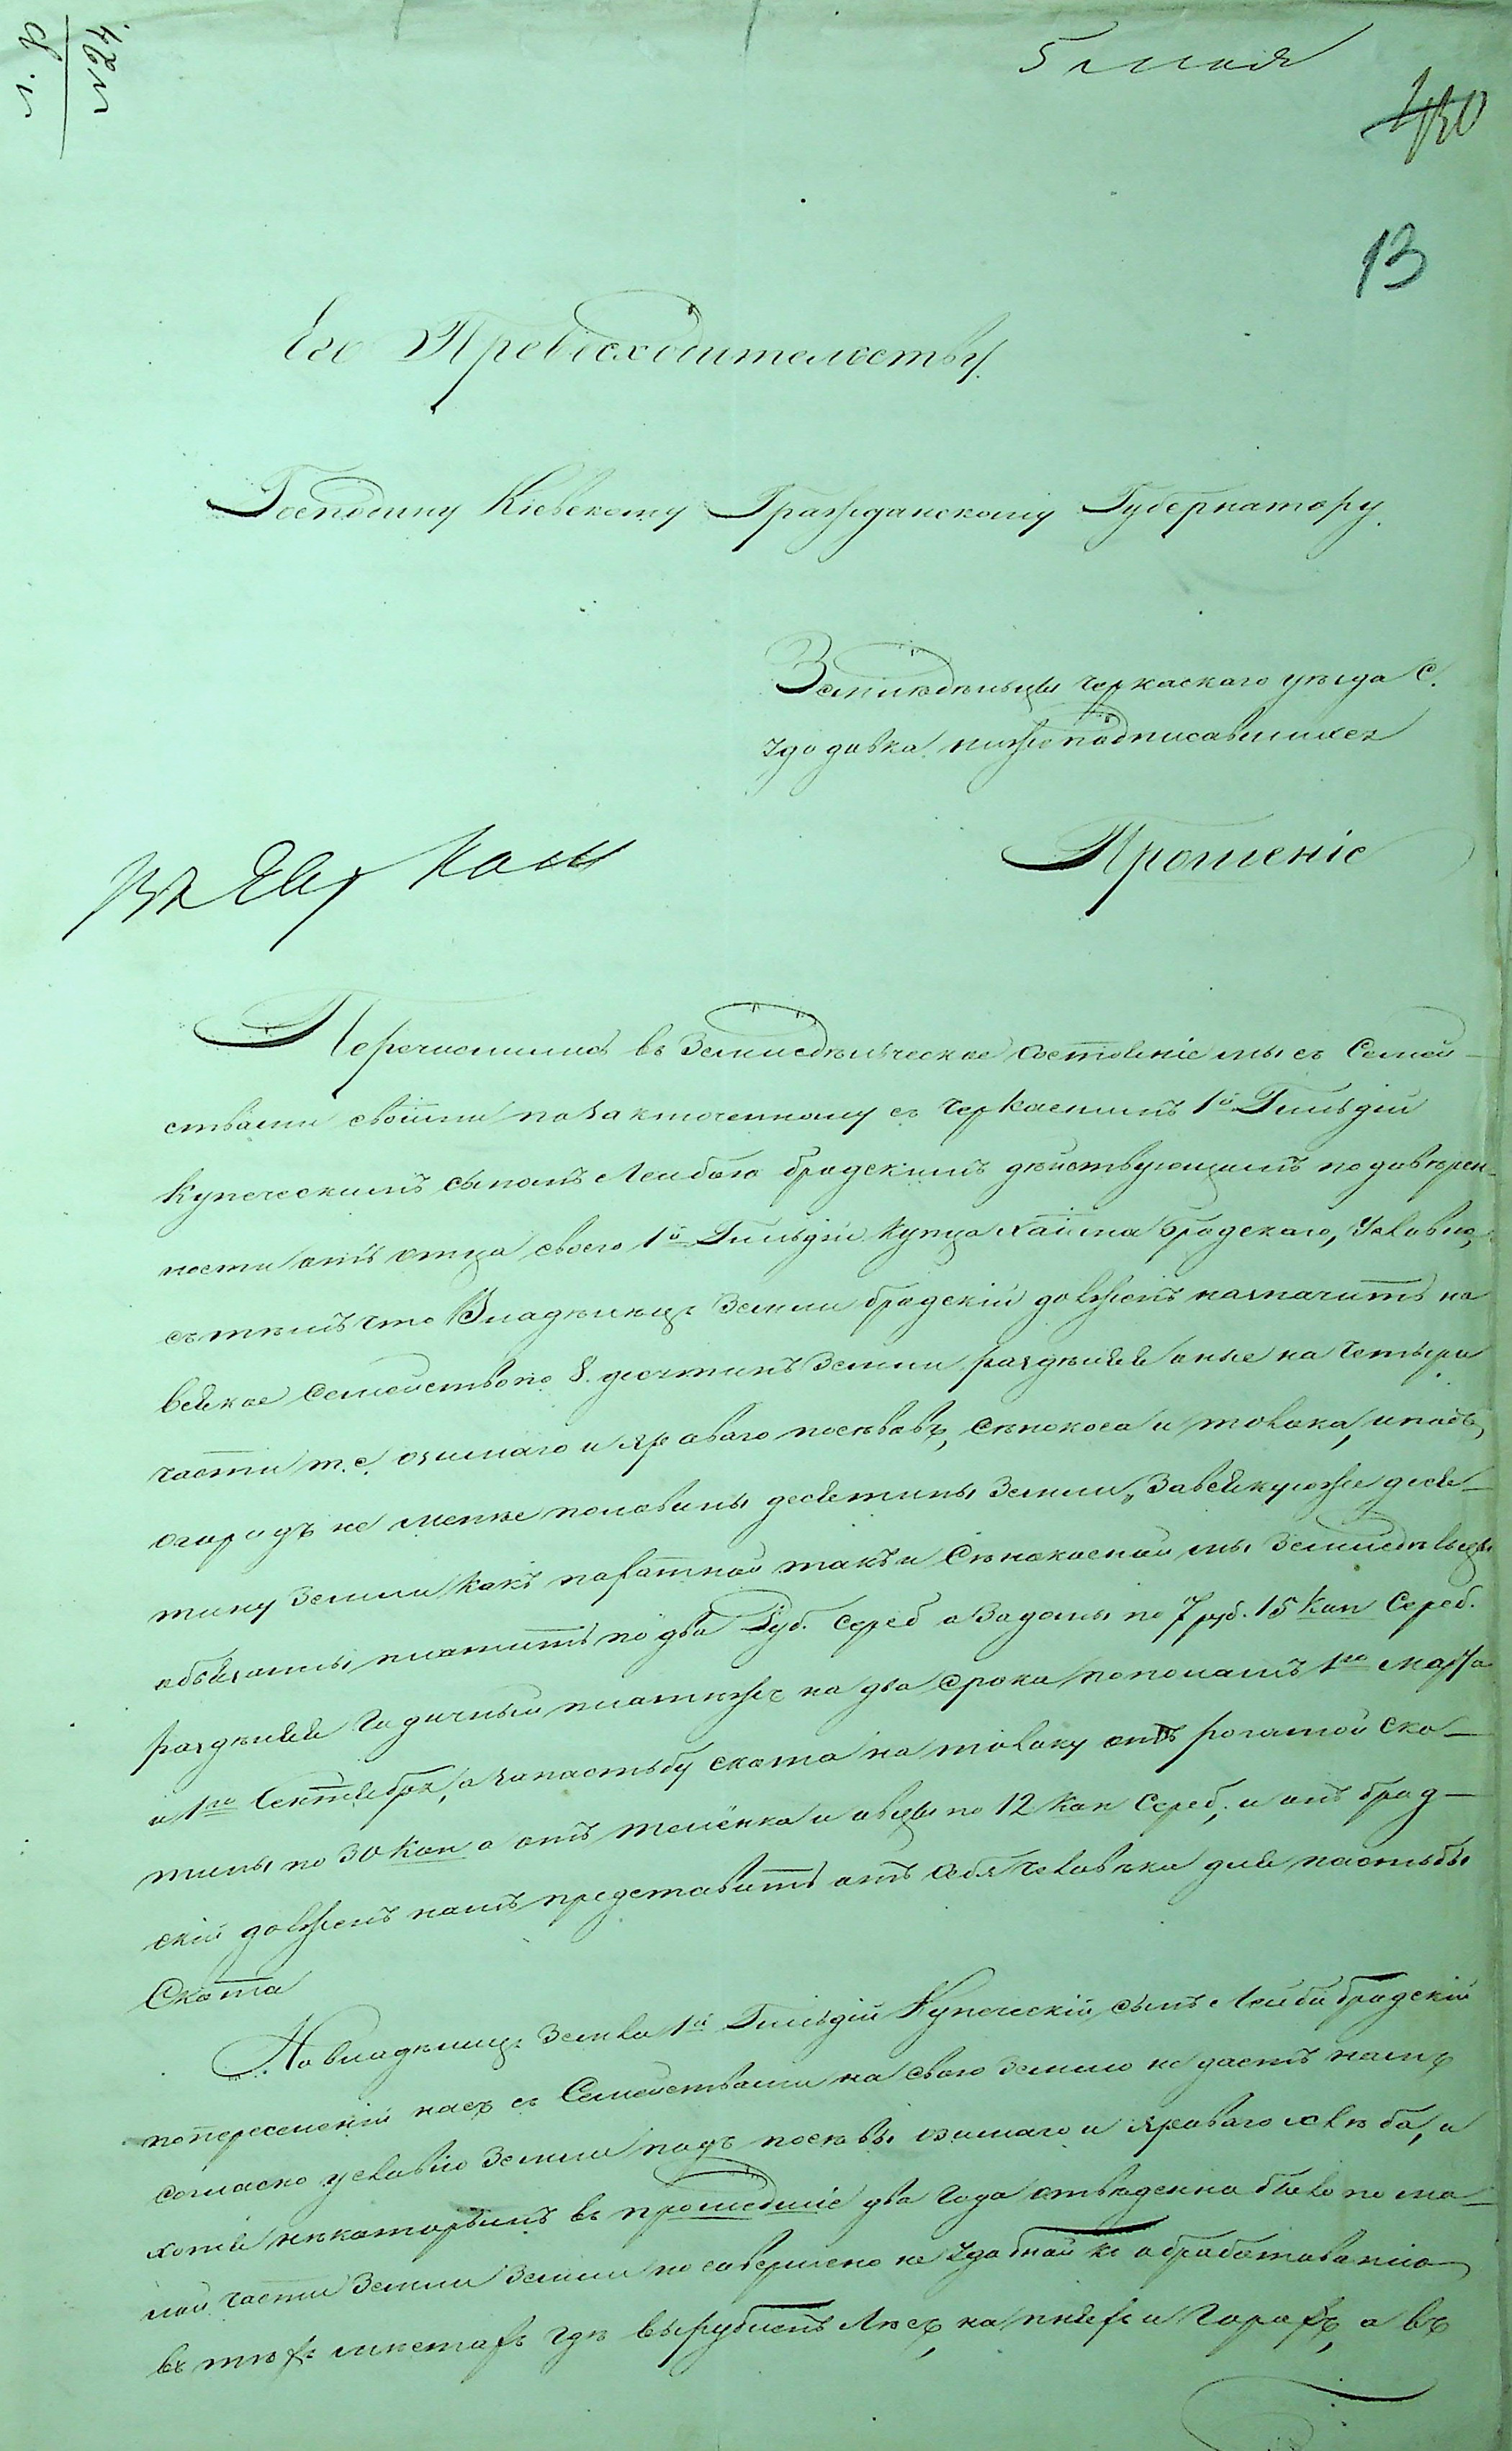 5 мая
430
13
Его Превосходительству
Господину Кіевскому Гражданскому Губернатору.
Земледѣльцы черкаскаго уѣзда С.
здодавка нижеподписавшихся
Прошеніе
въ Евр Ком
Перечислились въ Земледѣльческое состояніе мы съ Семей-
ствами своими по заключенному съ Черкаскимъ 1й Гильдіи
Купеческимъ сыномъ Лейбою бродскимъ дѣйствующимъ по довѣрен-
ности отъ отца своего 1й Гильдіи Купца Хаима Бродскаго, Условію,
съ тѣмъ что Владѣлецъ Земли бродскій долженъ назначить на
всякое Семейство по 8. десятинъ Земли раздѣляя оные на Четыре
части т.е. озимаго и яроваго посѣвовъ, сѣнокоса и толока, и подъ
огородъ не менѣе половины десятины Земли, За всякую же деся-
тину Земли какъ пахатной такъ и Сѣнокосной мы Земледѣльцы
обязались платить по два Руб. Сереб а За домы по 7 руб. 15 Коп Сереб.
раздѣляя Годичный платежъ на два Срока пополамъ 1го Марта
и 1го Сентября, а за пастьбу скота на толоку отъ рогатой ско-
тины по 30 Коп а отъ телёнка и овцы по 12 Коп Сереб; и онъ брод-
скій долженъ намъ представить отъ Себя Человѣка для пастьбы
Скота
Но владѣлецъ Земли 1й Гильдіи Купеческій сынъ Лейба Бродскій
по переселеніи насъ съ Семействами на свою Землю не даетъ намъ
согласно условію Земли подъ посѣвы озимаго и яроваго хлѣба, и
хотя нѣкоторымъ въ прошедшіе два Года отведенно было по ма-
лой части Земли Земли но совершено не Удобной къ обработованію
въ тѣхъ мѣстахъ гдѣ вырубленъ Лѣсъ, на пняхъ и Горахъ, а въ